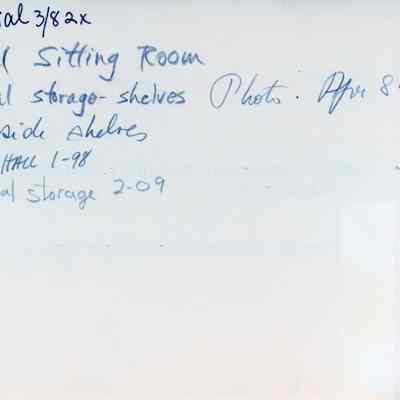 al 3/82x
l Sitting Room
al storage - shelves Photo: Apr 8
side shelves
HALL 1-98
al storage 2-09